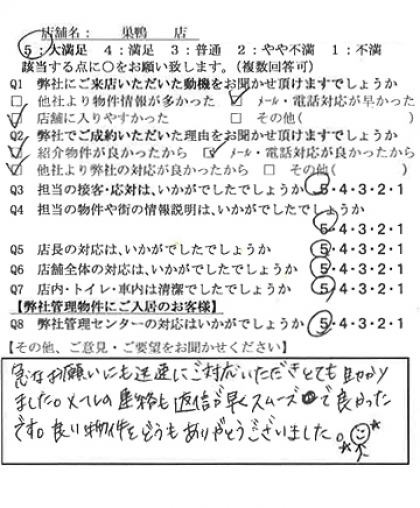 店舗名： 巣鴨 店
5：大満足 4：満足 3：普通 2：やや不満 1：不満
該当する点に○をお願い致します。（複数回答可）
Q1 弊社にご来店いただいた動機をお聞かせ頂けますでしょうか
□ 他社より物件情報が多かった ☑ メール・電話対応が早かった
☑ 店舗に入りやすかった □ その他( )
Q2 弊社でご成約いただいた理由をお聞かせ頂けますでしょうか
☑ 紹介物件が良かったから ☑ メール・電話対応が良かったから
☑ 他社より弊社の対応が良かったから □ その他( )
Q3 担当の接客・応対は、いかがでしたでしょうか 5・4・3・2・1
Q4 担当の物件や街の情報説明は、いかがでしたでしょうか
5・4・3・2・1
Q5 店長の対応は、いかがでしたでしょうか 5・4・3・2・1
Q6 店舗全体の対応は、いかがでしたでしょうか 5・4・3・2・1
Q7 店内・トイレ・車内は清潔でしたでしょうか 5・4・3・2・1
【弊社管理物件にご入居のお客様】
Q8 弊社管理センターの対応はいかがでしょうか 5・4・3・2・1
【その他、ご意見・ご要望をお聞かせください】
急なお願いにも迅速にご対応いただきとても助かり
ました。メールの連絡も返信が早くスムーズで良かった
です。良い物件をどうもありがとうございました。